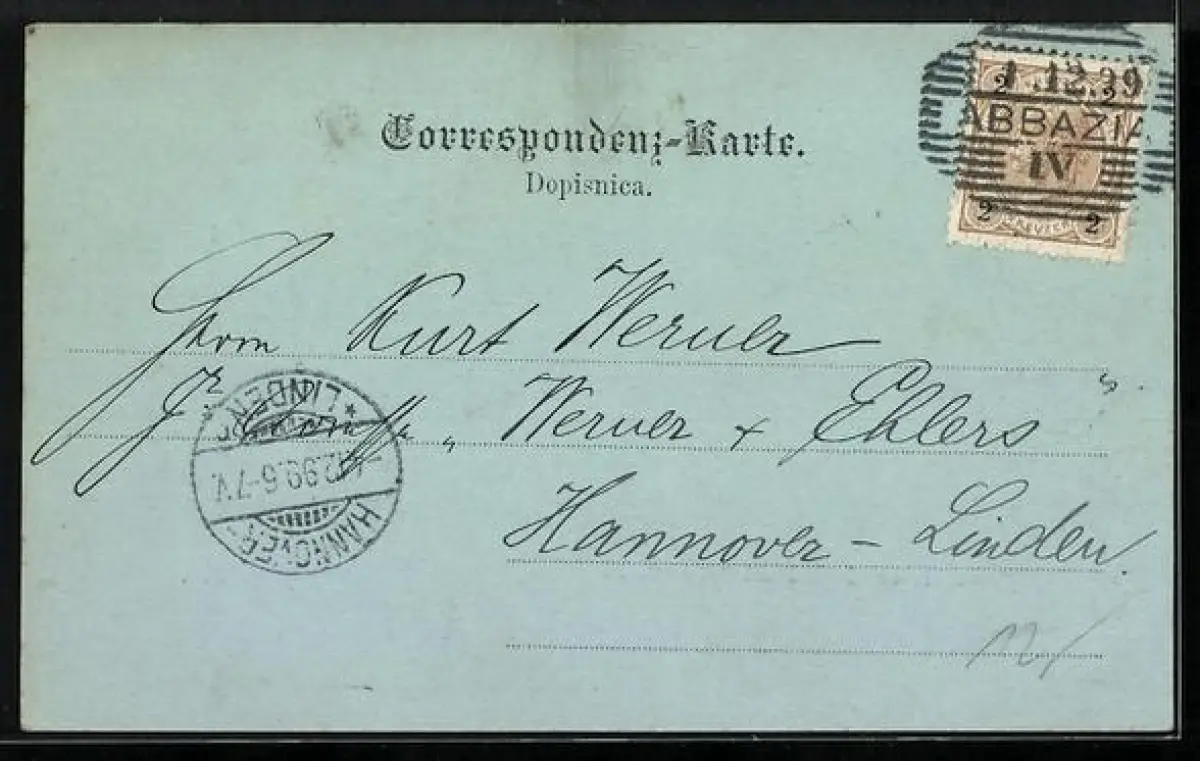 Correspondenz-Karte.
Dopisnica.
1.12.99
ABBAZIA
IV
2 2
2 2
Herrn Kurt Werner
„ Werner + Ehlers "
Hannover - Linden.
HANNOVER * LINDEN
.12.99.6-7V.